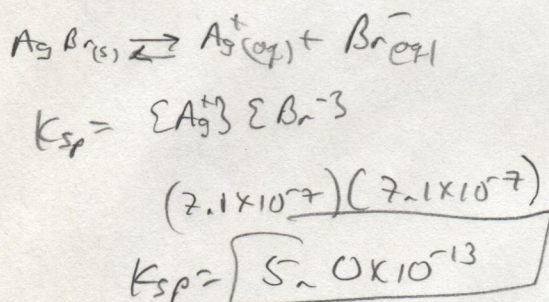 AgBr(s) ⇌ Ag⁺(aq) + Br⁻(aq)
Ksp = {Ag⁺} {Br⁻}
(7.1×10⁻⁷)(7.1×10⁻⁷)
Ksp = 5.0×10⁻¹³